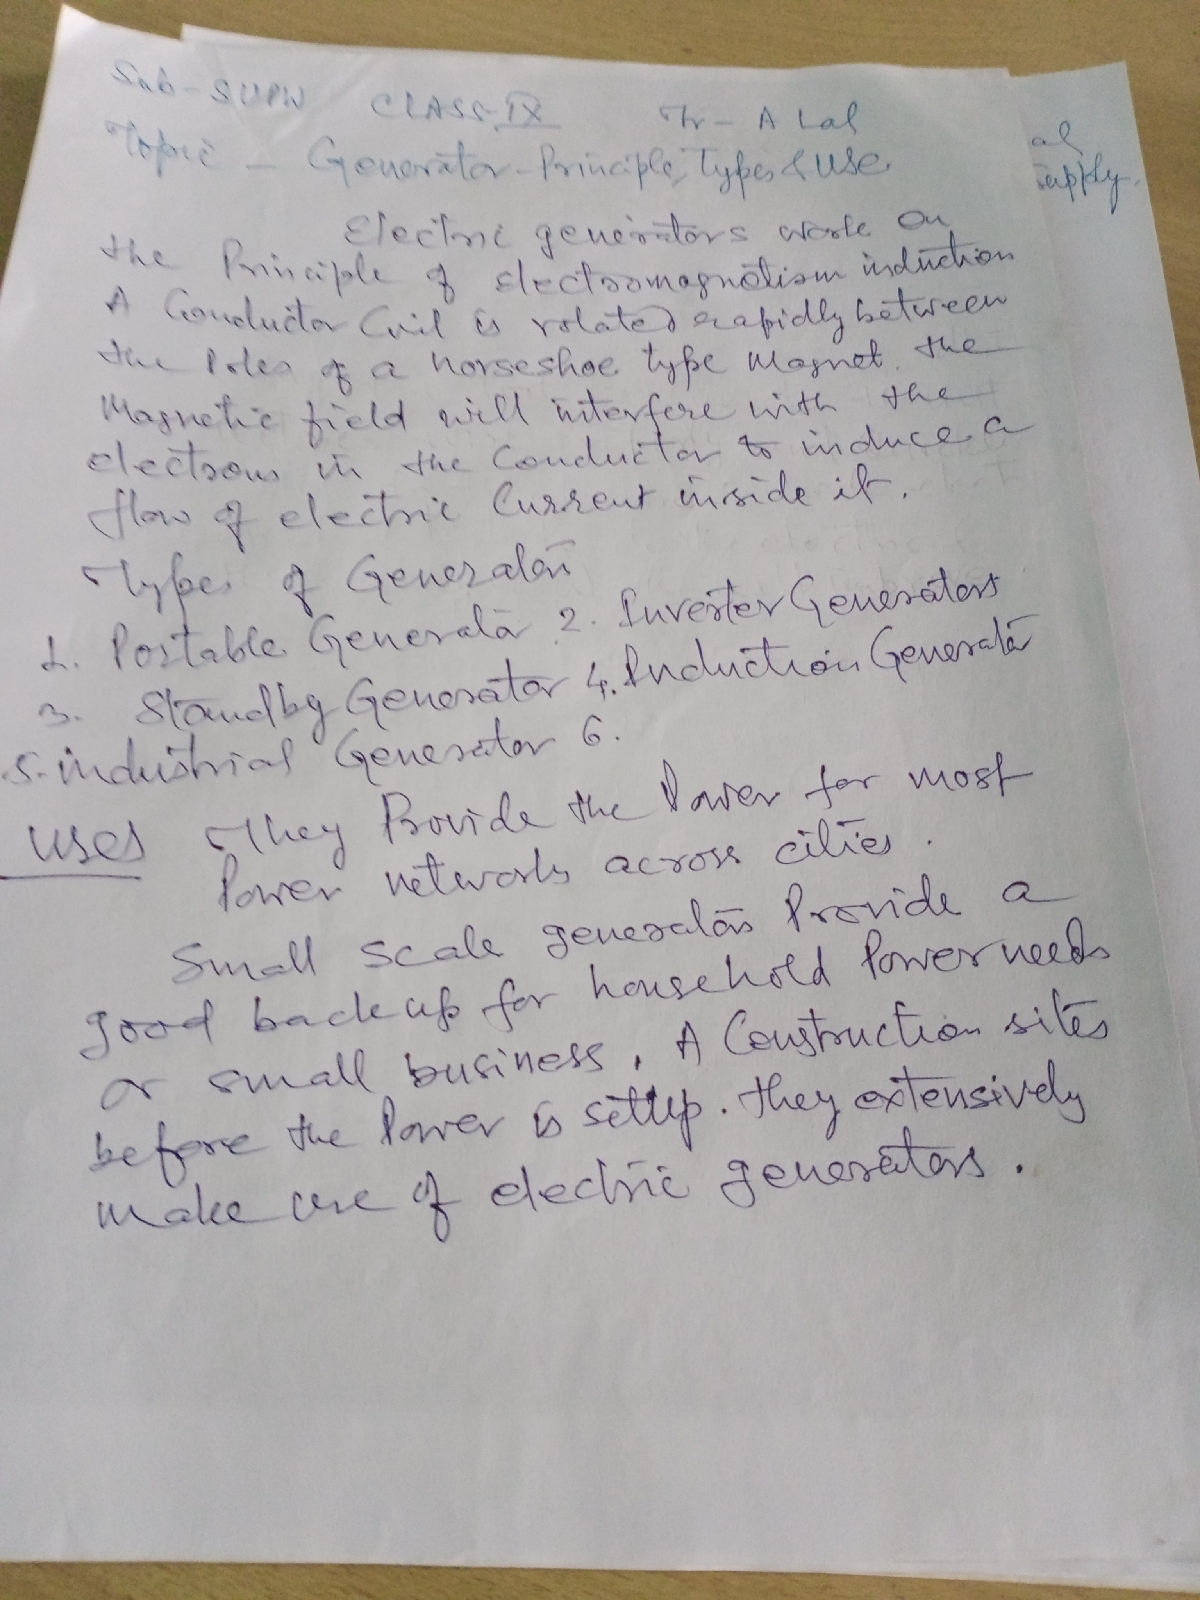 Sub-SUPW CLASS-IX Tr- A Lal
Topic - Generator-Principle, Types & USE
Electric generators work on
the Principle of electromagnetism induction
A Conductor Coil is rotated rapidly between
the Poles of a horseshoe type Magnet. the
Magnetic field will interfere with the
electrons in the Conductor to induce a
flow of electric Current inside it.
Types of Generators
1. Portable Generator 2. Inverter Generators
3. Standby Generator 4. Induction Generator
5. industrial Generator 6.
USES They Provide the Power for most
Power networks across cities.
Small scale generators Provide a
good back up for household Power needs
or small business. A Construction sites
before the Power is settup. they extensively
make use of electric generators.
al
supply.